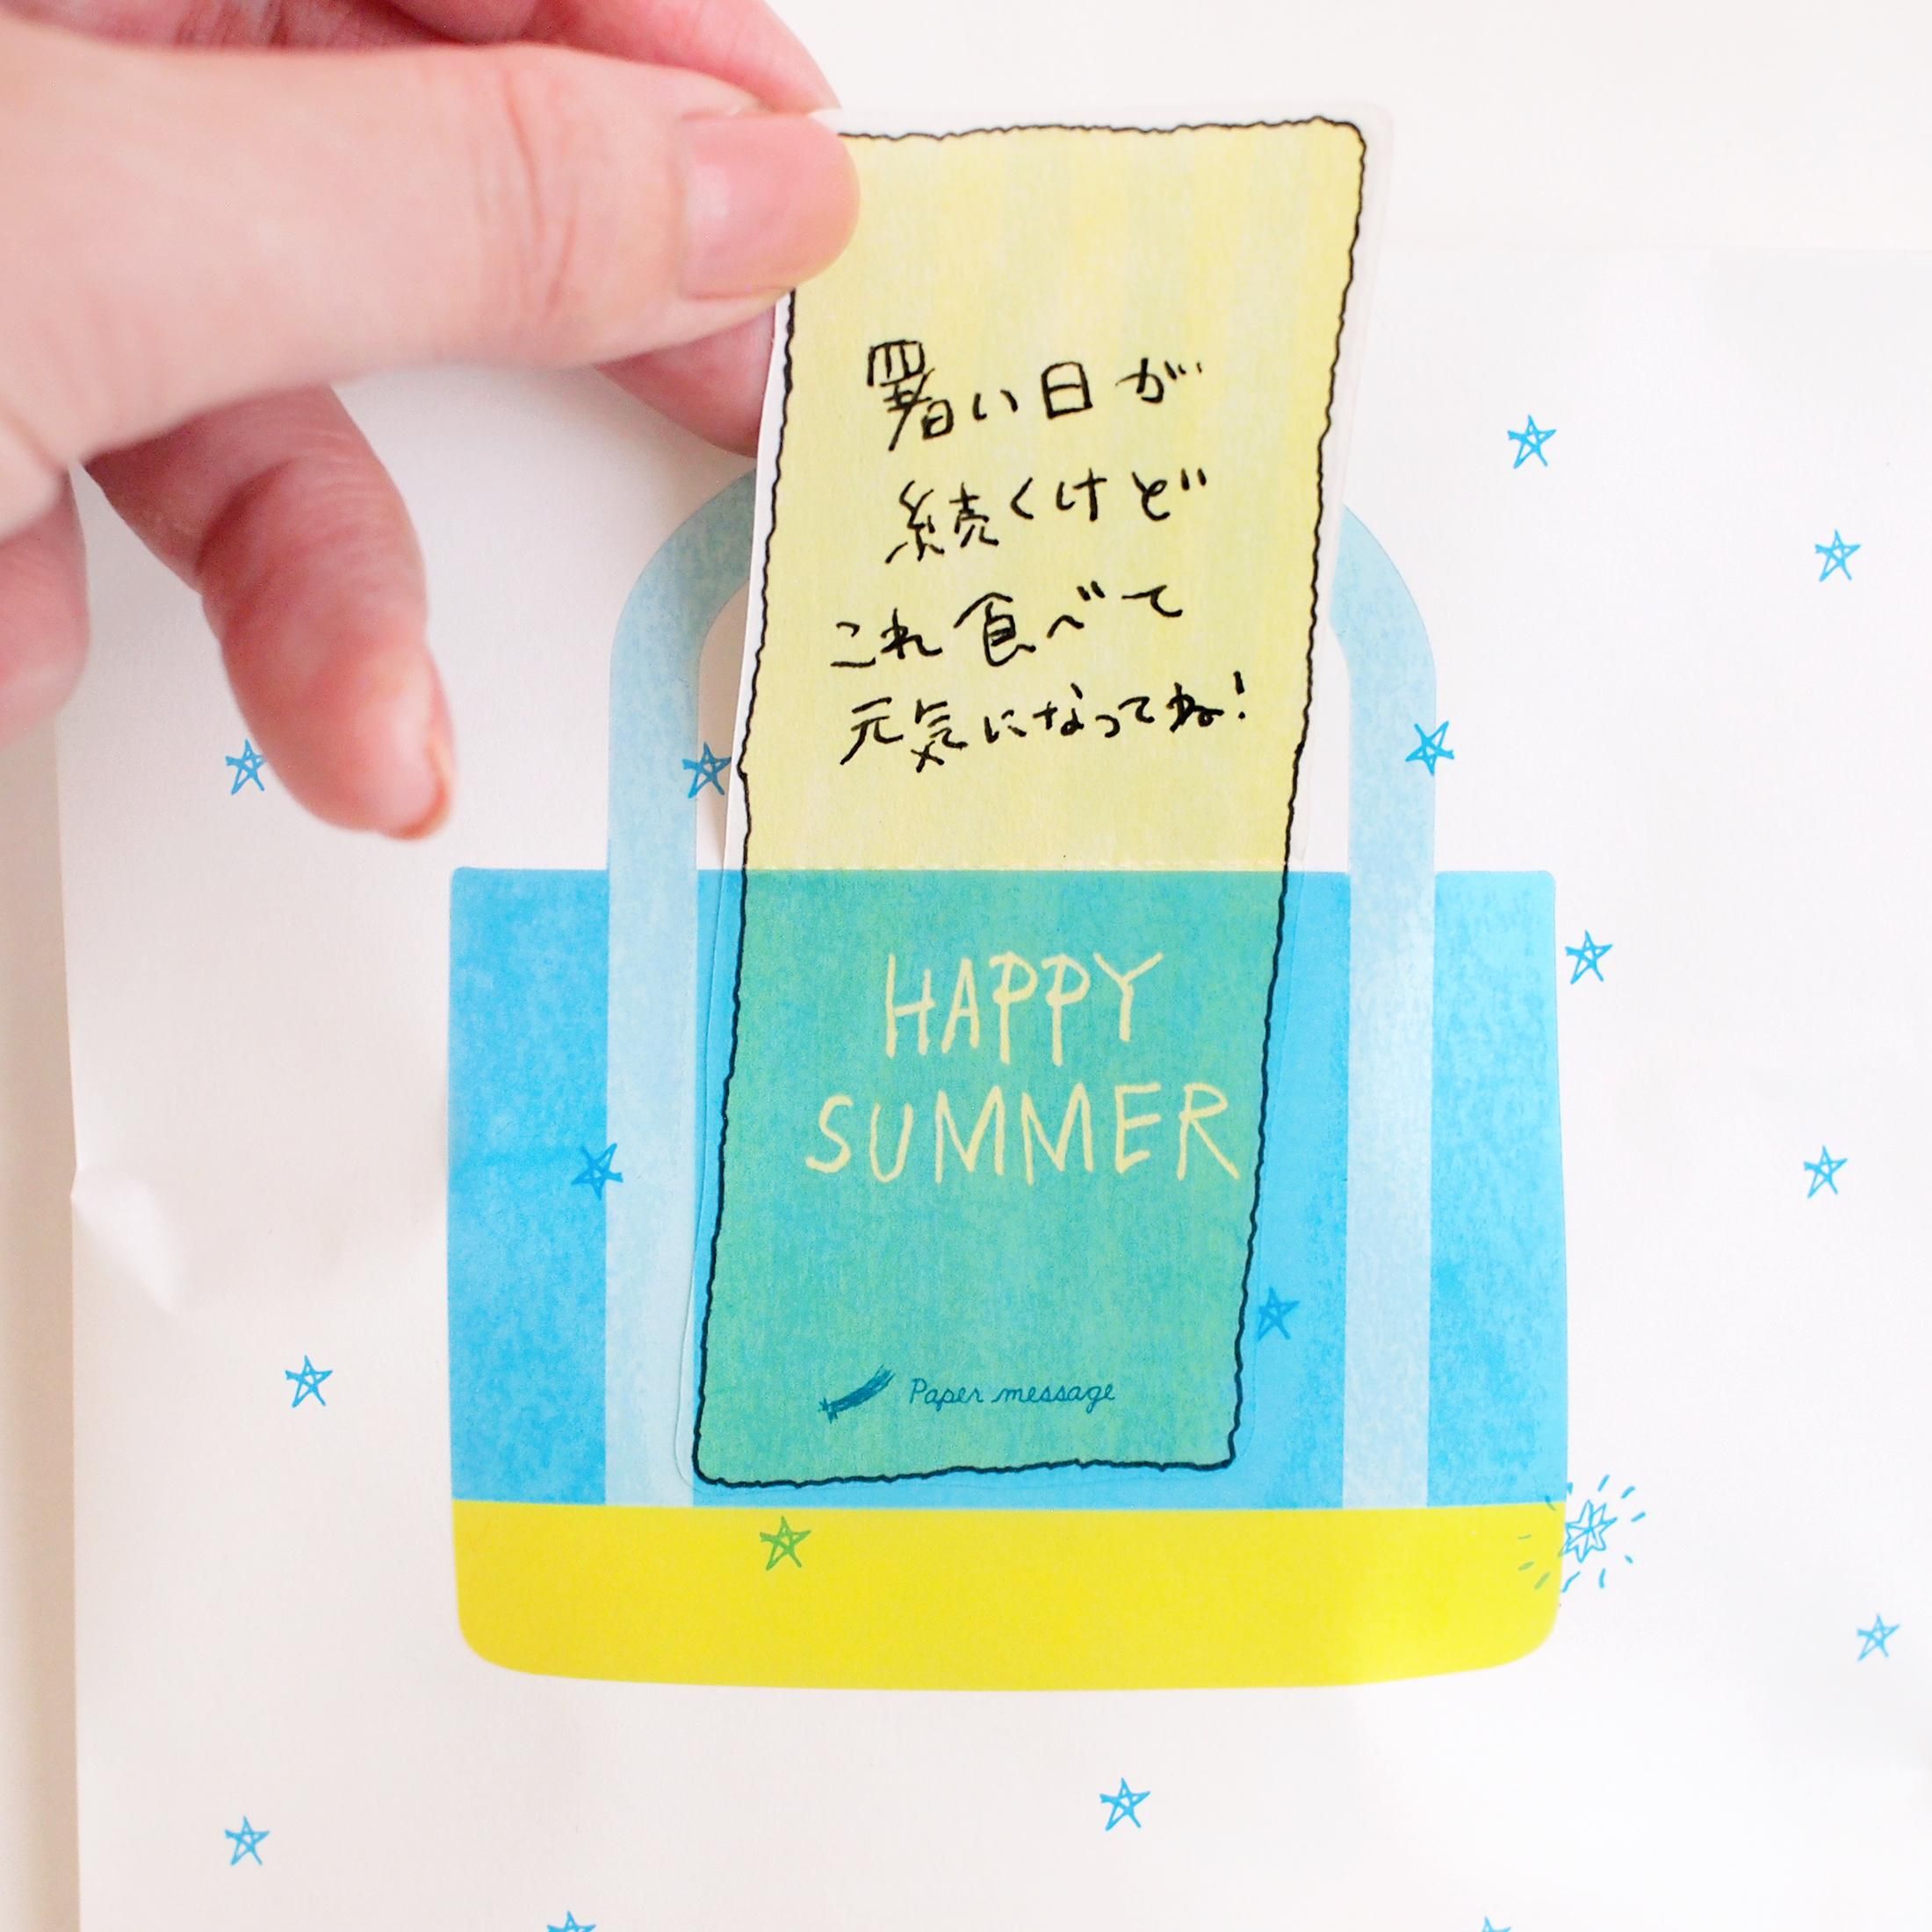 暑い日が
続くけど
これ食べて
元気になってね!
HAPPY
SUMMER
Paper message